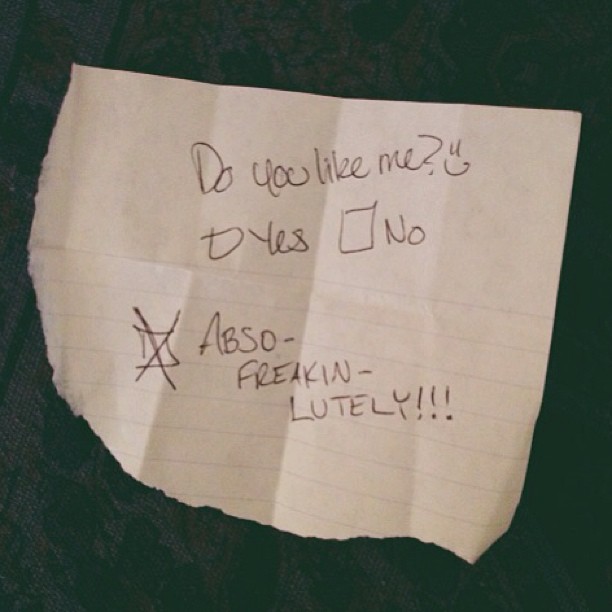 Do you like me?
Yes No
ABSO-
FREAKIN-
LUTELY!!!